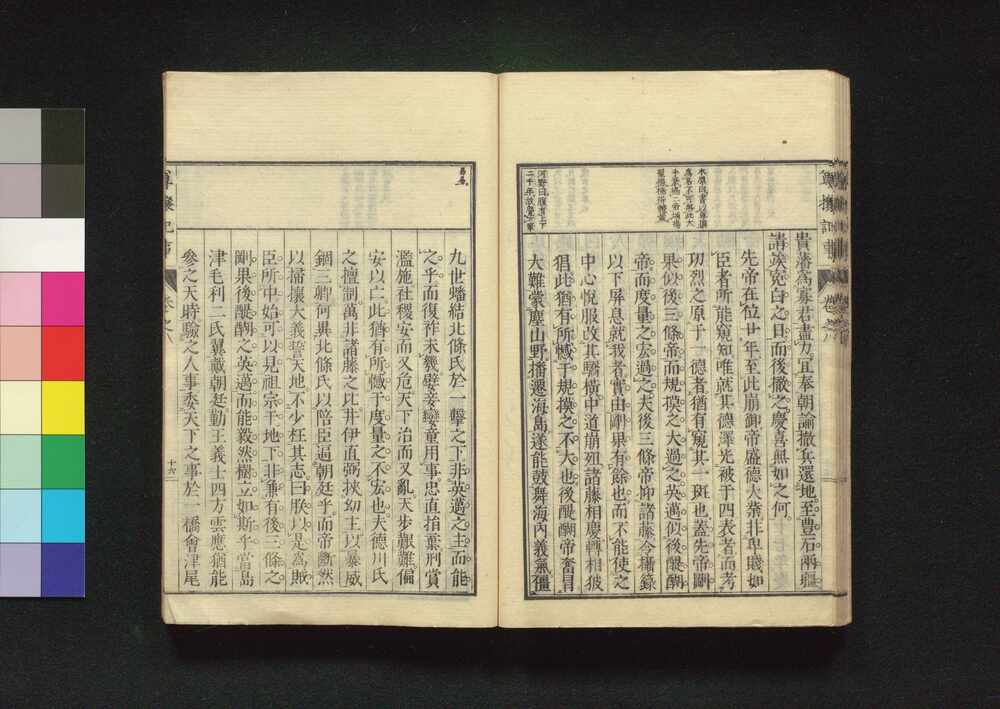 貴藩為寡君盡力宜奉朝諭撤兵還地至豊石兩疆
請俟寃白之日而後撤之慶喜無如之何
先帝在位廿年至此崩御帝盛德大業非卑賤如
臣者所能窺知唯就其德澤光被于四表者而考
功烈之原于一德者猶有窺其一斑也蓋先帝剛
果似後三條帝而規模之大過之英邁似後醍醐
帝而度量之宏過之夫後三條帝抑諸藤令搢籙
以下屏息就我者實由剛果有餘也而不能使之
中心悅服改其驕橫中道崩殂諸藤相慶轉相彼
猖此猶有所憾于規摸之不大也後醍醐帝奮冐
大難蒙塵山野播遷海島遂能鼓舞海内義氣殭
河野曰腹有上下
二千年故發言章
尊攘紀事
卷之八
九世蟠結北條氏於一擊之下非英邁之主而能
之乎而復祚未幾嬖妾孌童用事忠直捐棄刑賞
濫施社稷安而又危天下治而又亂天步艱難偏
安以亡此猶有所憾于度量之不宏也夫德川氏
之擅制萬非諸藤之比井伊直弼挾幼主以暴威
錮三卿何異北條氏以陪臣逼朝廷乎而帝斷然
以掃攘大義誓天地不少枉其志曰朕以是為賊
臣所中始可以見祖宗于地下非兼有後三條之
剛果後醍醐之英邁而能毅然樹立如斯乎當島
津毛利二氏翼戴朝廷勤王義士四方雲應猶能
參之天時驗之人事委天下之事於一橋會津尾
十六